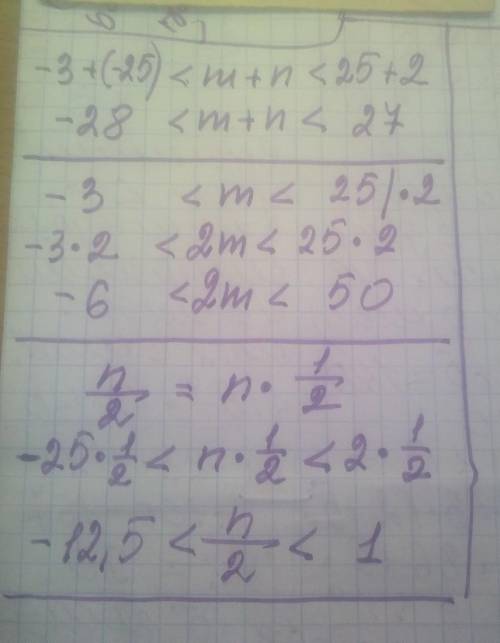 -3+(-25) < m+n < 25+2
-28 < m+n < 27
-3 < m < 25 | •2
-3•2 < 2m < 25•2
-6 < 2m < 50
n/2 = n • 1/2
-25•1/2 < n•1/2 < 2•1/2
-12,5 < n/2 < 1